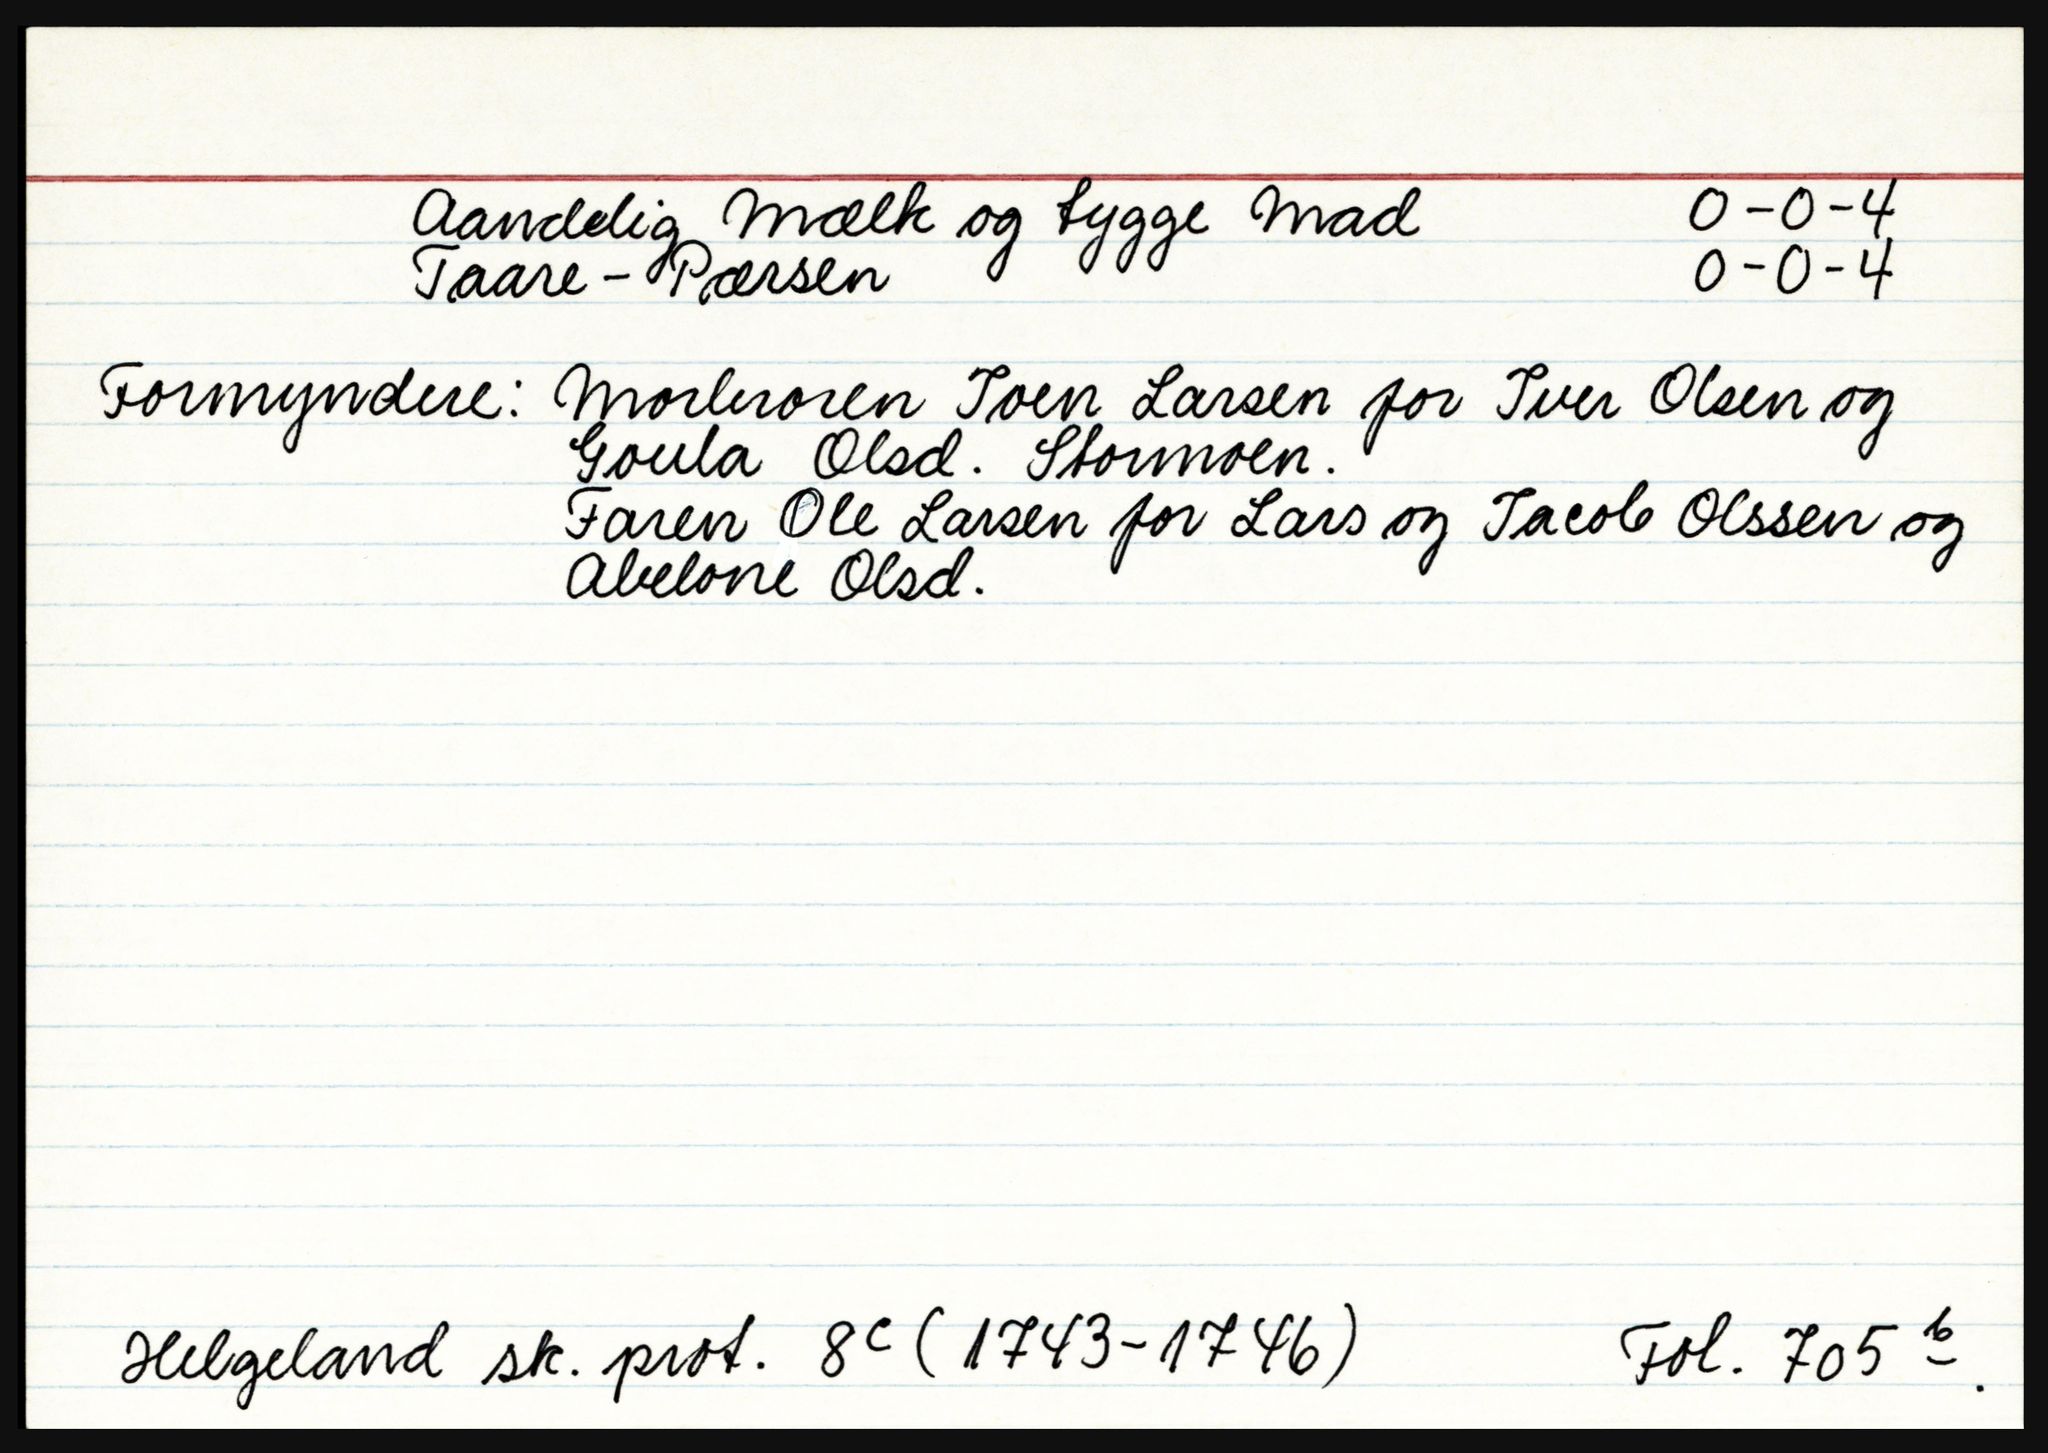 Aanddig Mælk og tygge Mad 0-0-4
Taare-Pærsen 0-0-4
Formyndere: Morbroren Joen Larsen for Iver Olsen og
Goula Olsd. Stormoen.
Faren Ole Larsen for Lars og Jacob Olssen og
Abelone Olsd.
Helgeland sk. prot. 8c (1743-1746) Fol. 705 b.